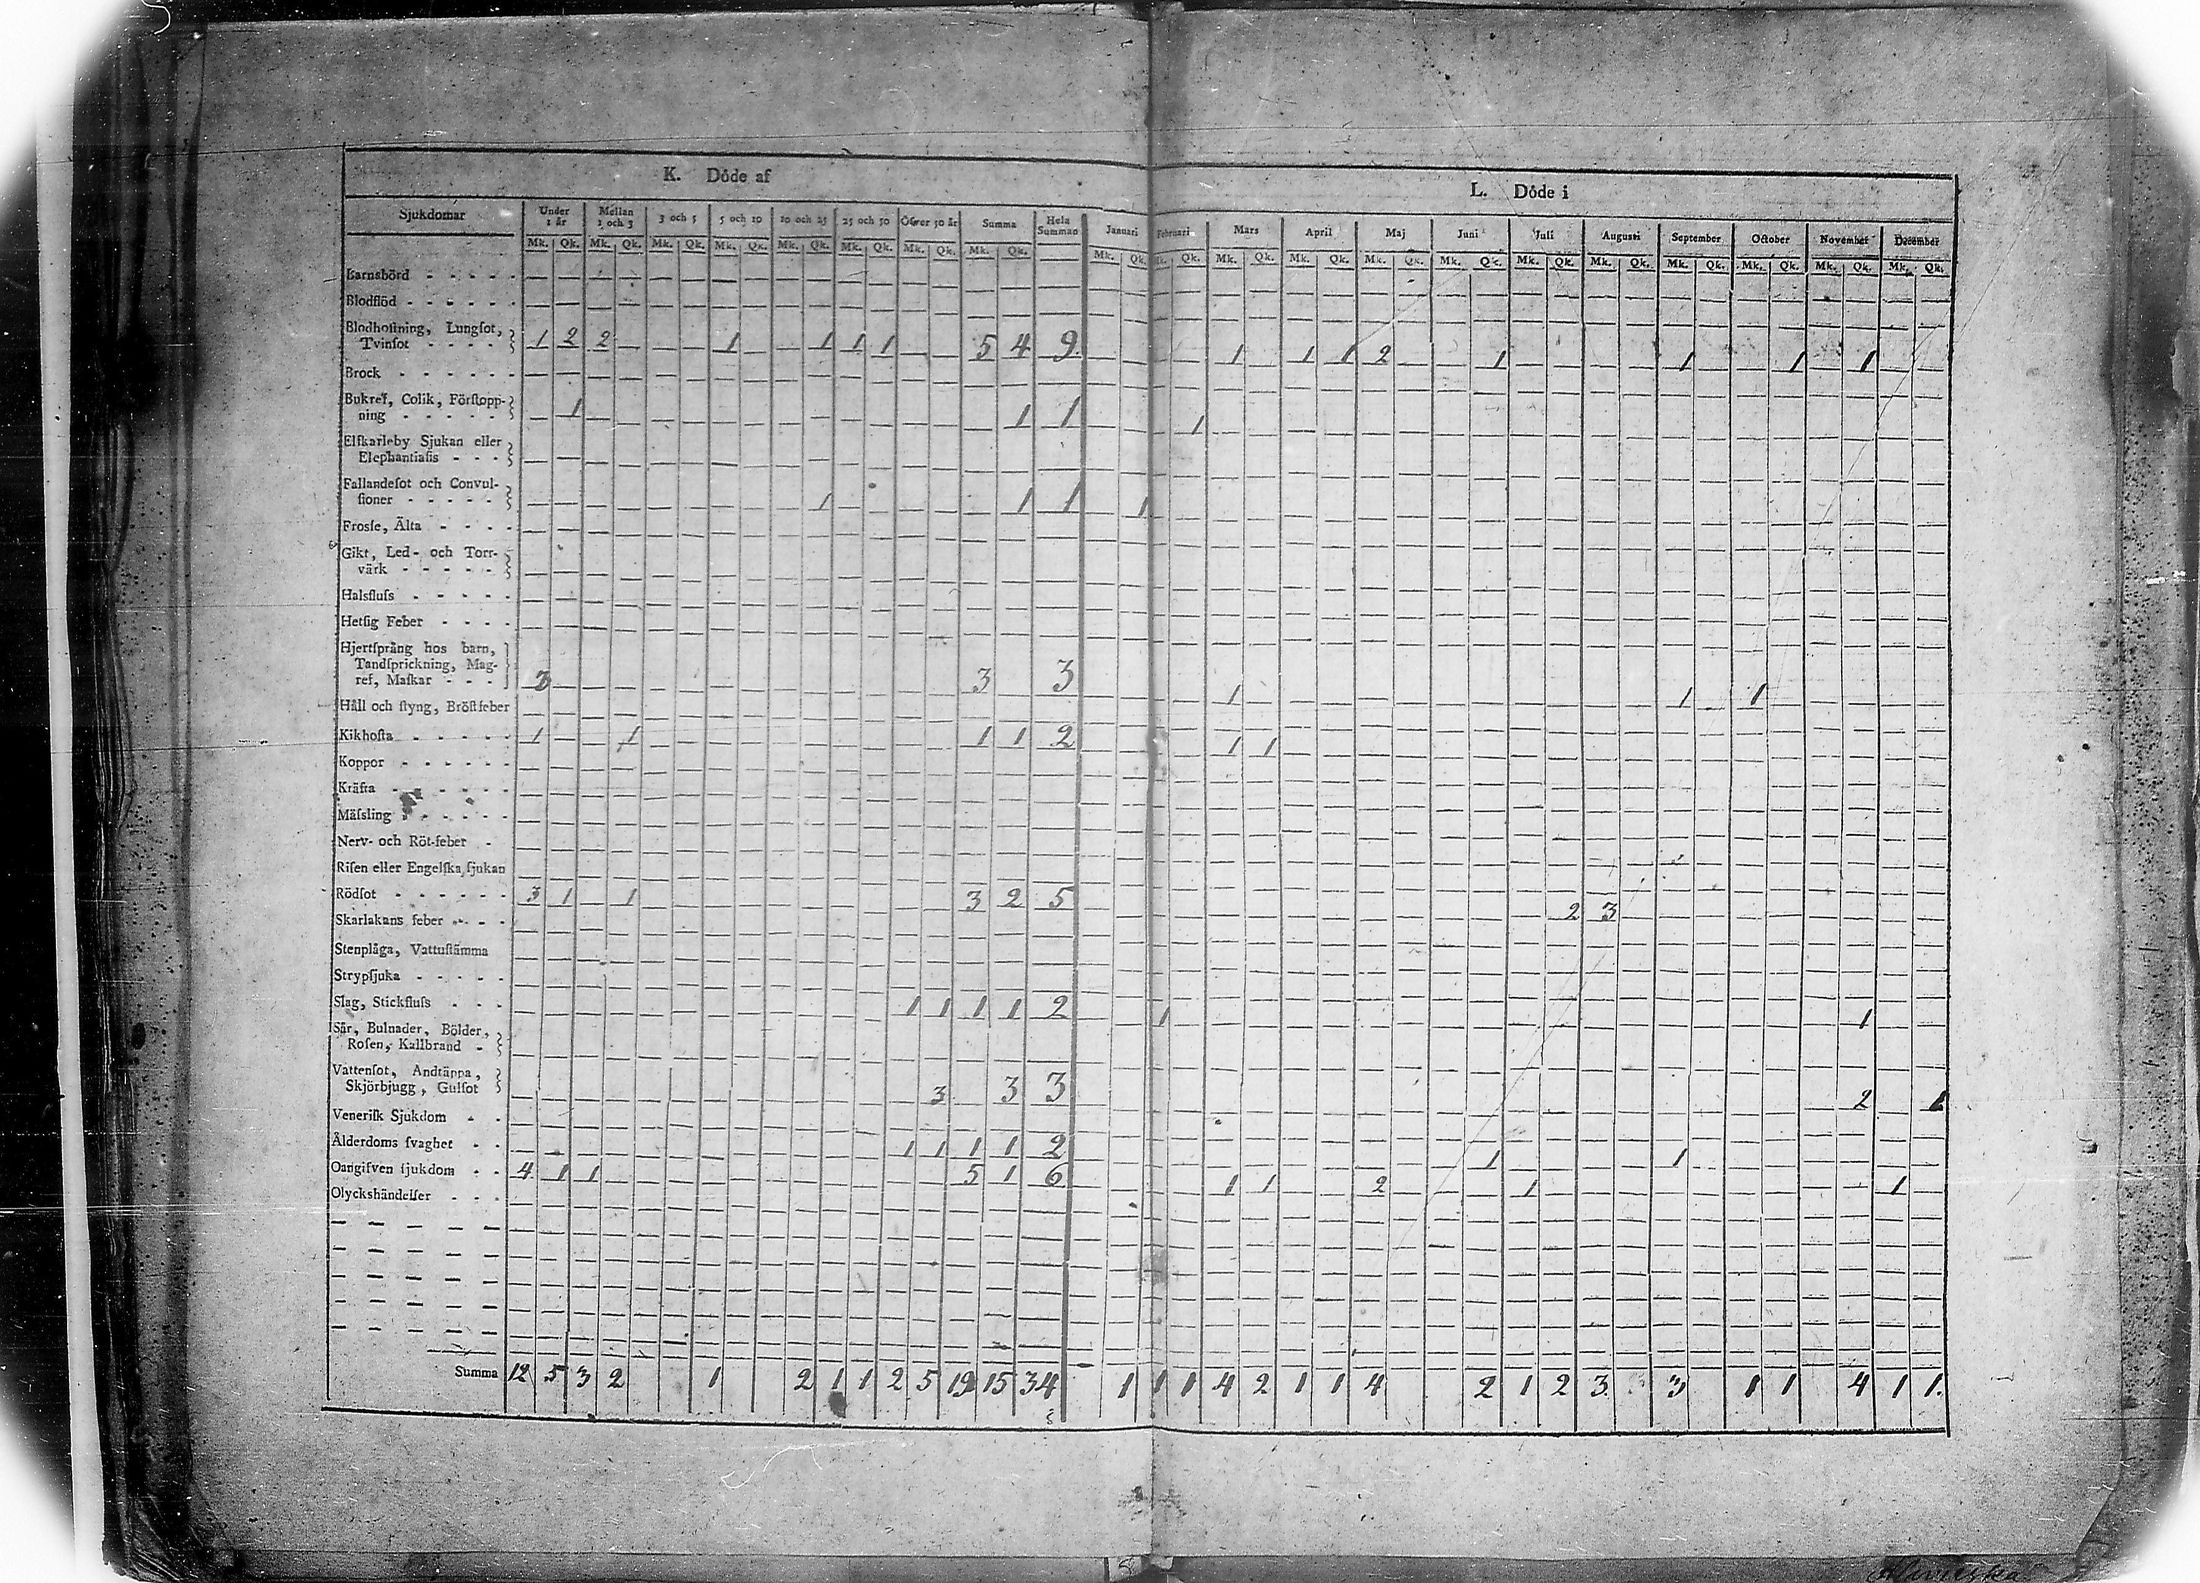 K. Dôde af
L. Dôde i
Sjukdomar Under 1 år Mellan 1 och 3 3 och 5 5 och 10 10 och 25 25 och 50 Öfver 50 år Summa Hela Summan Januari Februari Mars April Maj Juni Juli Augusti September October November December
Mk. Qk. Mk. Qk. Mk. Qk. Mk. Qk. Mk. Qk. Mk. Qk. Mk. Qk. Mk. Qk. Mk. Qk. Mk. Qk. Mk. Qk. Mk. Qk. Mk. Qk. Mk. Qk. Mk. Qk. Mk. Qk. Mk. Qk. Mk. Qk. Mk. Qk. Mk. Qk.
Barnsbörd
Blodflöd
Blodhoſtning, Lungſot,
Tvinſot 1 2 2 1 1 1 1 5 4 9 1 1 1 2 1 1 1 1
Brock
Bukref, Colik, Förſtopp-
ning 1 1 1 1
Elfkarleby Sjukan eller
Elephantiaſis
Fallandeſot och Convul-
ſioner 1 1 1 1
Frosſe, Älta
Gikt, Led- och Torr-
värk
Halsfluſs
Hetſig Feber
Hjertſprång hos barn,
Tandſprickning, Mag-
ref, Maſkar 3 3 3 1 1 1
Håll och ſtyng, Bröſtfeber
Kikhoſta 1 1 1 1 2 1 1
Koppor
Kräfta
Mäſsling
Nerv- och Röt-feber
Riſen eller Engelſka ſjukan
Rödſot 3 1 1 3 2 5 2 3
Skarlakans feber
Stenplåga, Vattuſtämma
Strypſjuka
Slag, Stickfluſs 1 1 1 1 2 1 1
Sår, Bulnader, Bölder,
Roſen, Kallbrand
Vattenſot, Andtäppa,
Skjörbjugg, Gulſot 3 3 3 2 1
Veneriſk Sjukdom
Ålderdoms ſvaghet 1 1 1 1 2 1 1
Oangifven ſjukdom 4 1 1 5 1 6 1 1 2 1 1
Olyckshändelſer
Summa 12 5 3 2 1 2 1 1 2 5 19 15 34 1 1 1 4 2 1 1 4 2 1 2 3 3 1 1 4 1 1.